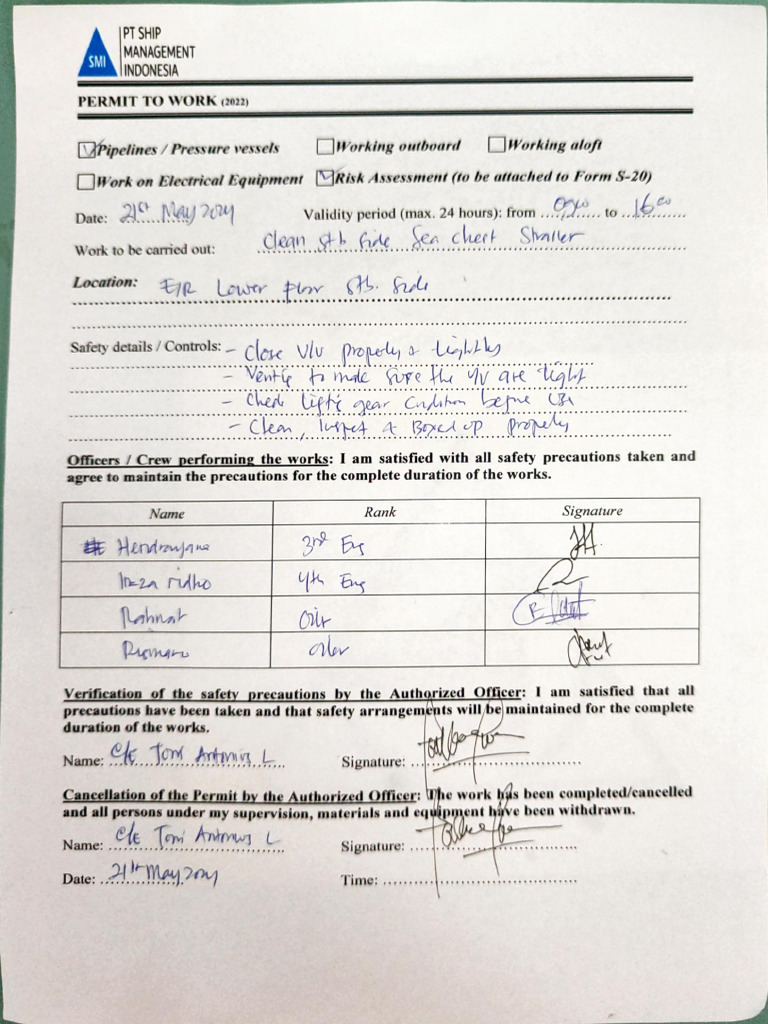 SMI
PT SHIP
MANAGEMENT
INDONESIA
PERMIT TO WORK (2022)
Pipelines / Pressure vessels Working outboard Working aloft
Work on Electrical Equipment Risk Assessment (to be attached to Form S-20)
Date: 21st May 2024 Validity period (max. 24 hours): from to 16 00
Work to be carried out: Clean stb side Sea chest
Location: E/R Lower floor stb. side
Safety details / Controls: - Close V/V properly & tightly
- to make sure the V/V are tight
- Check gear condition before
- Clean, Inspect & Boxed up properly
Officers / Crew performing the works: I am satisfied with all safety precautions taken and
agree to maintain the precautions for the complete duration of the works.
Name Rank Signature
3rd Eng
ridho 4th Eng
Rahmat
Verification of the safety precautions by the Authorized Officer: I am satisfied that all
precautions have been taken and that safety arrangements will be maintained for the complete
duration of the works.
Name: C/E Toni Antonius L Signature:
Cancellation of the Permit by the Authorized Officer: The work has been completed/cancelled
and all persons under my supervision, materials and equipment have been withdrawn.
Name: C/E Toni Antonius L Signature:
Date: 21st May 2024 Time: